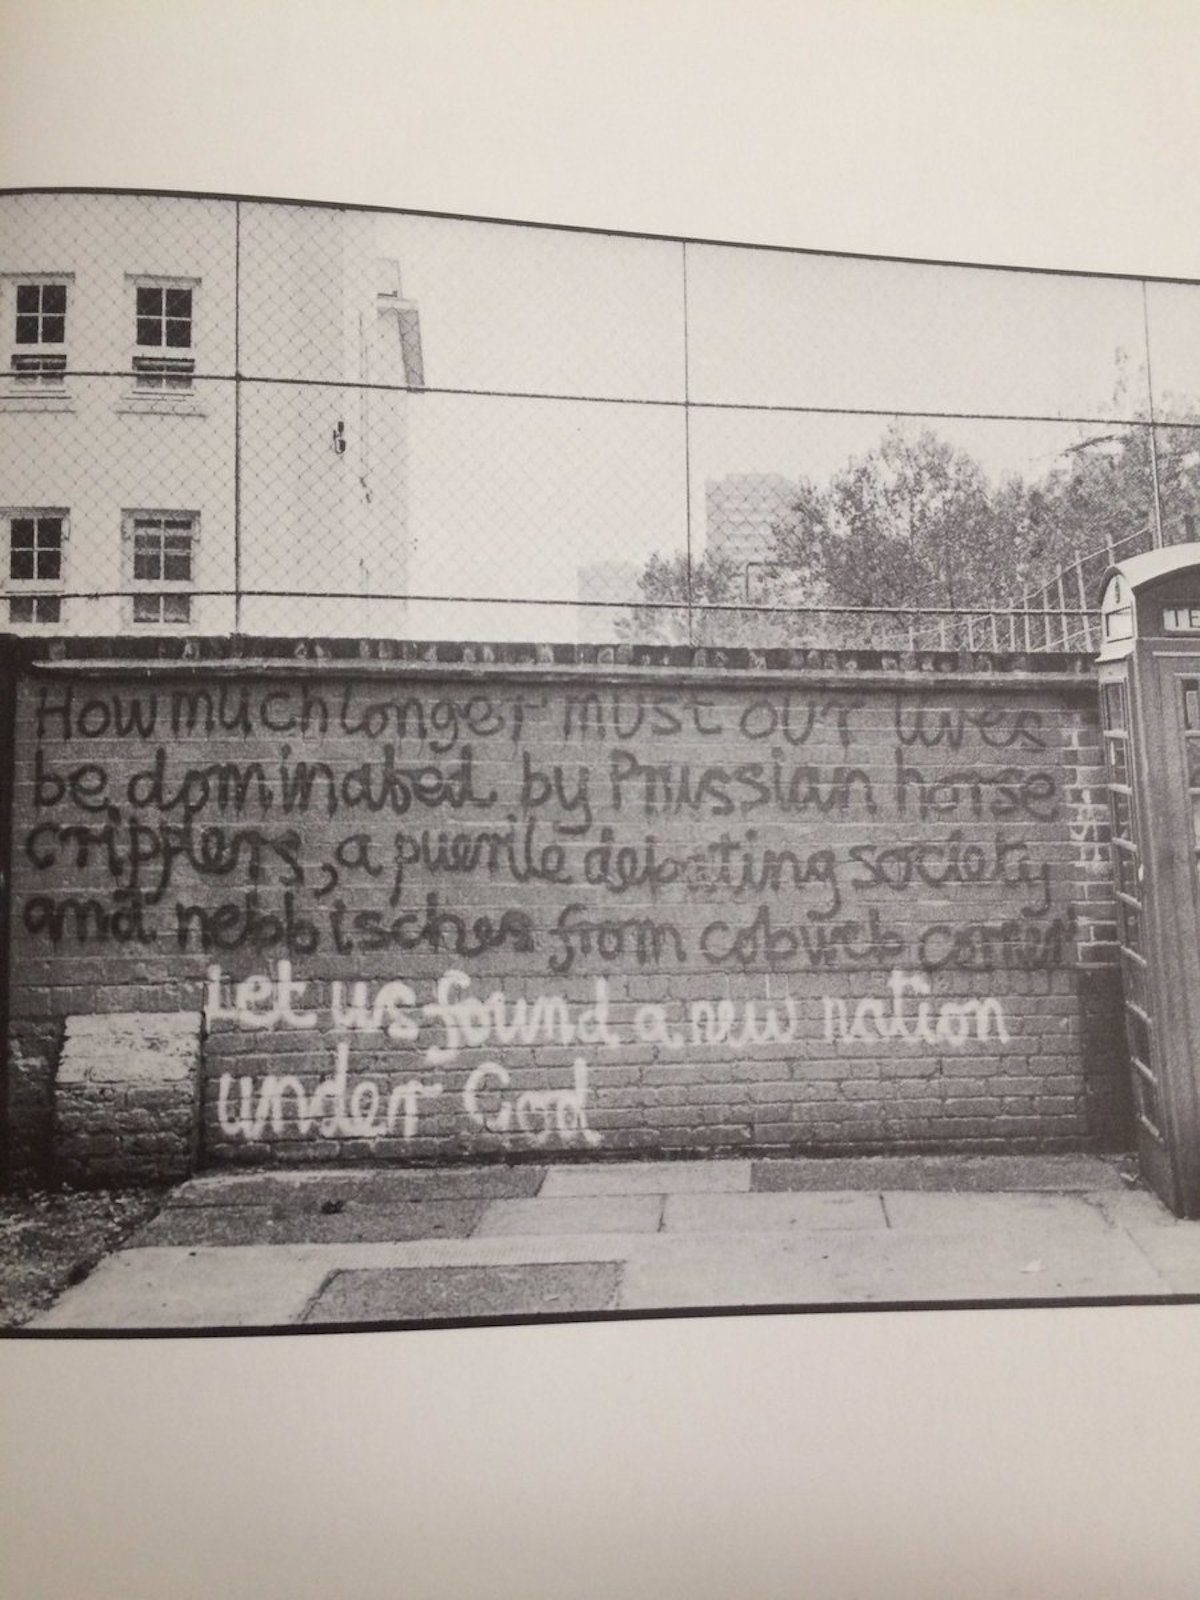 How much longer must our lives
be dominated by Prussian horse
cripplers, a puerile debating society
and nebbisches from cobweb corner
Let us found a new nation
under God
TE